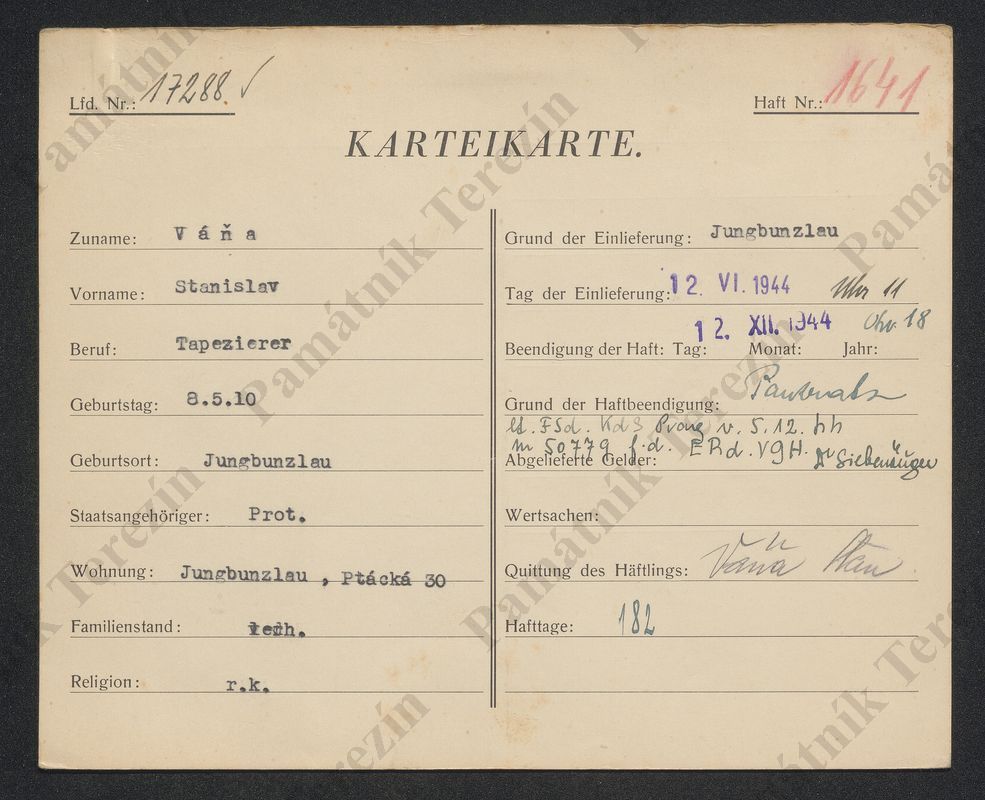 Lfd. Nr.: 17288
Haft Nr.: 1641
KARTEIKARTE.
Zuname: Váňa
Vorname: Stanislav
Beruf: Tapezierer
Geburtstag: 8.5.10
Geburtsort: Jungbunzlau
Staatsangehöriger: Prot.
Wohnung: Jungbunzlau, Ptácká 30
Familienstand:
Religion: r.k.
Grund der Einlieferung: Jungbunzlau
Tag der Einlieferung: 12. VI. 1944 Uhr 11
12. XII. 1944 18
Beendigung der Haft: Tag: Monat: Jahr:
Grund der Haftbeendigung: Pankratz
lt. FSd. KdS Prag v. 5.12.44
50779 f.d. VGH.
Abgelieferte Gelder:
Wertsachen:
Quittung des Häftlings: Váňa Stan
Hafttage: 182
Památník Terezín